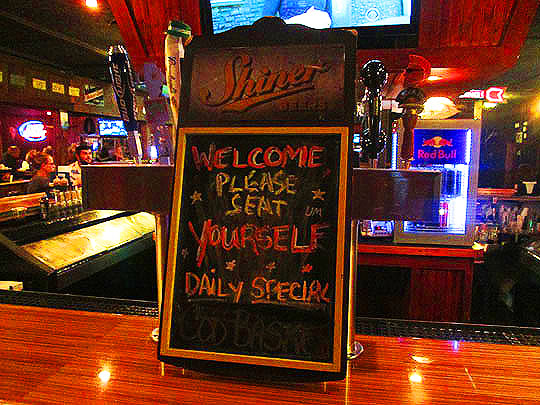 Shiner
BEERS
WELCOME
PLEASE
SEAT
UM
YOURSELF
DAILY SPECIAL
COD BASKET
Red Bull